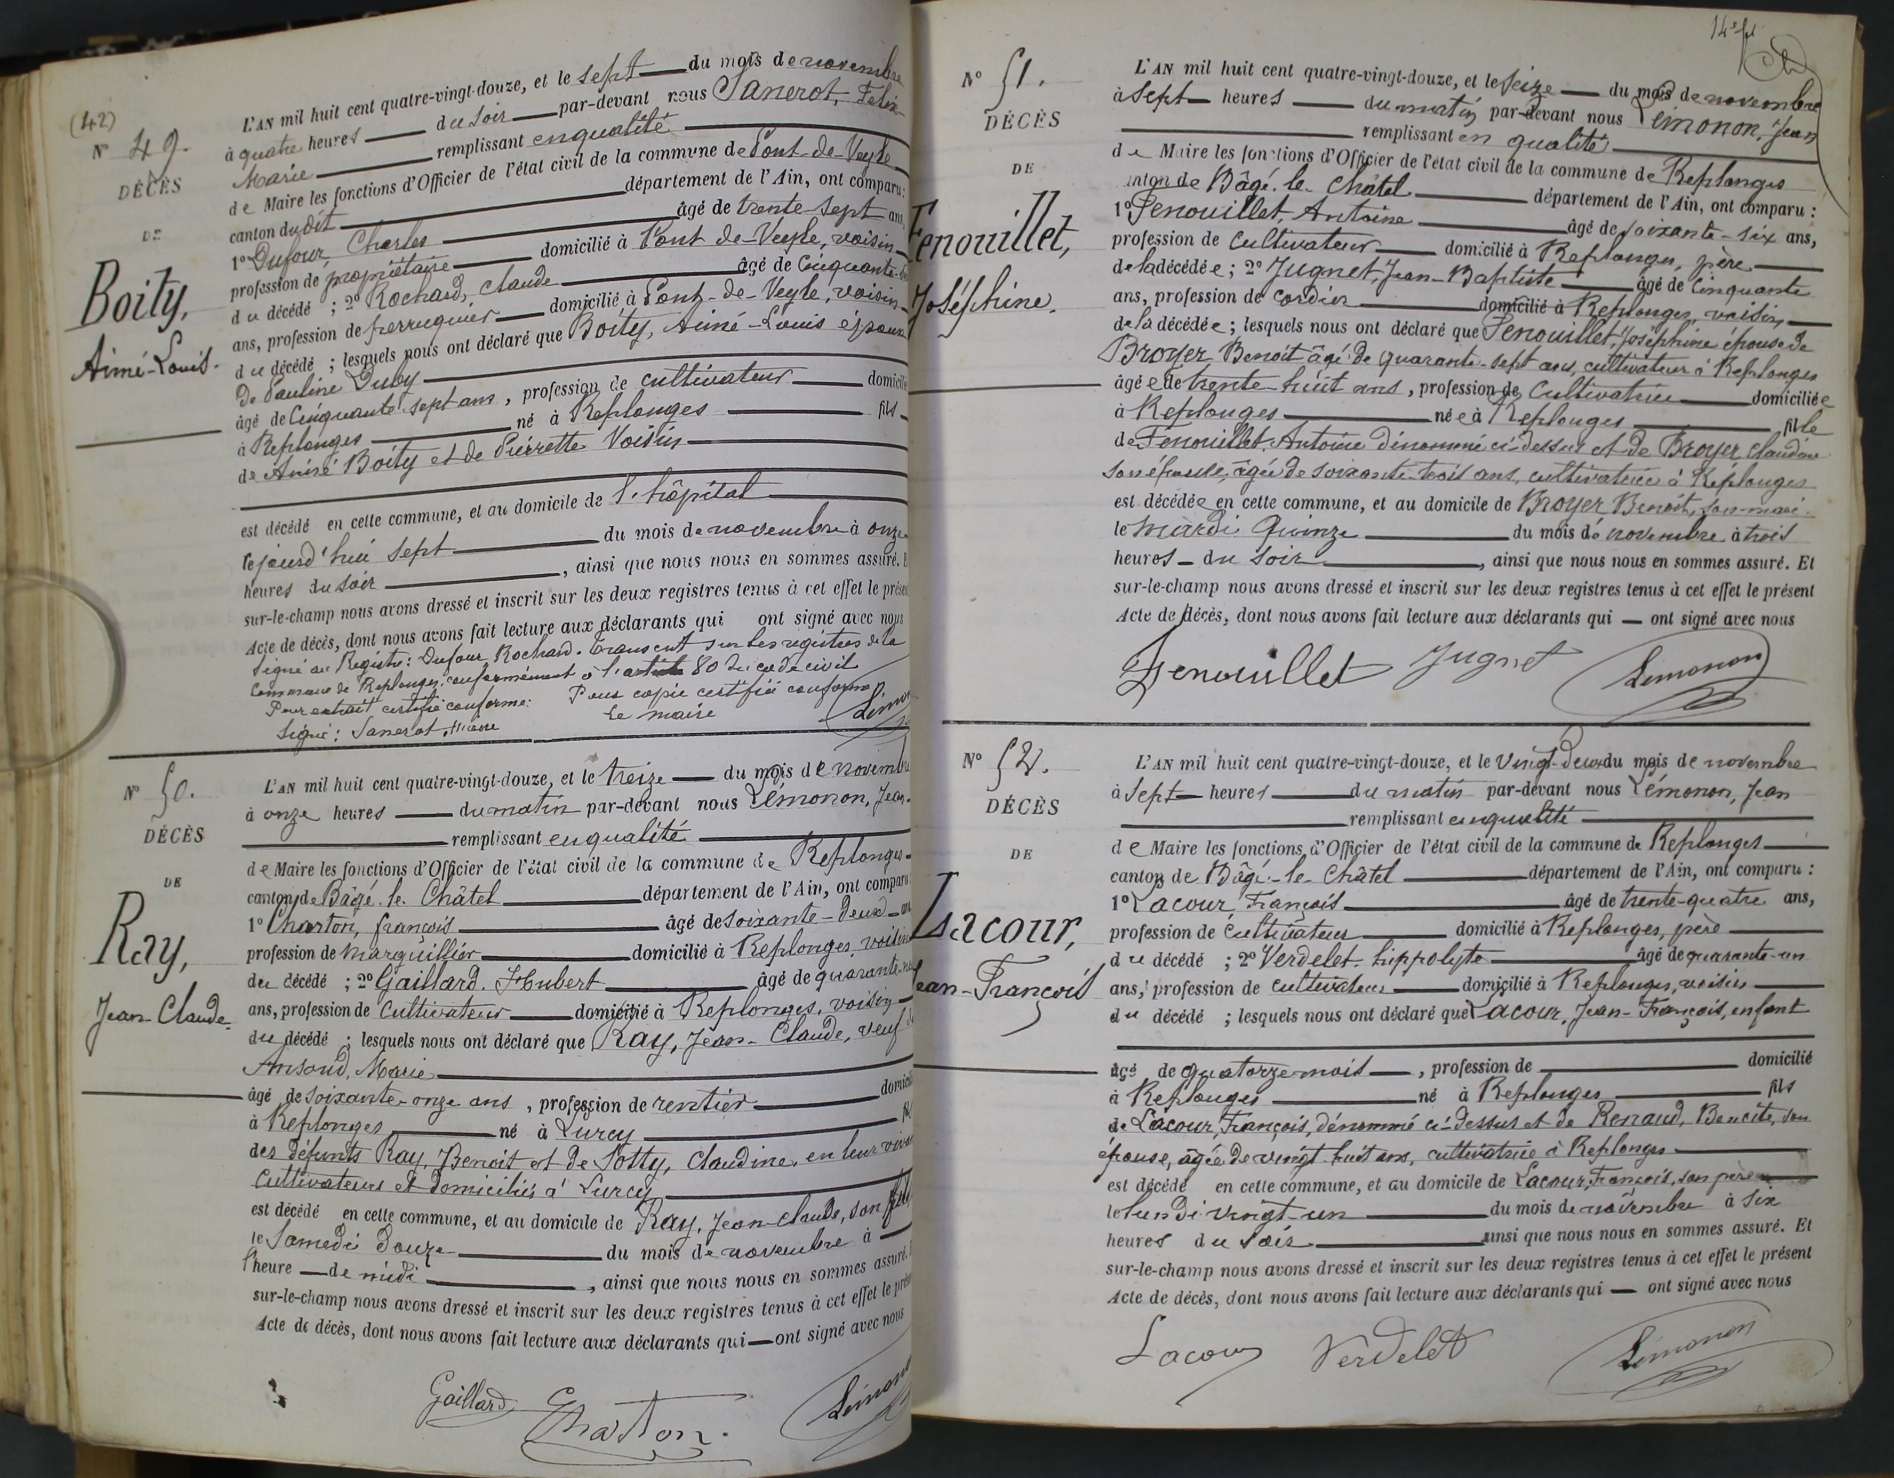 (42)
N° 49.
DÉCÈS
DE
Boity,
Aimé-Louis.
L'AN mil huit cent quatre-vingt-douze, et le sept du mois de novembre
à quatre heures du soir par-devant nous Sanerot, Felix
Marie remplissant en qualité
de Maire les fonctions d'Officier de l'état civil de la commune de Pont-de-Veyle
canton du dit département de l'Ain, ont comparu :
1° Dufour, Charles âgé de trente-sept ans,
profession de propriétaire domicilié à Pont-de-Veyle, voisin
du décédé ; 2° Rochard, Claude âgé de Cinquante
ans, profession de perruquier domicilié à Pont-de-Veyle, voisin
du décédé ; lesquels nous ont déclaré que Boity, Aimé-Louis époux
de Pauline Duby
âgé de Cinquante sept ans, profession de cultivateur domicilié
à Replonges né à Replonges fils
de Aimé Boity et de Pierrette Voisin
est décédé en cette commune, et au domicile de l'hôpital
le jourd'hui sept du mois de novembre à onze
heures du soir, ainsi que nous nous en sommes assuré. Et
sur-le-champ nous avons dressé et inscrit sur les deux registres tenus à cet effet le présent
Acte de décès, dont nous avons fait lecture aux déclarants qui ont signé avec nous
Signé au Registre : Dufour, Rochard. Transcrit sur les registres de la
Commune de Replonges, conformément à l'article 80 du code civil
Pour extrait certifié conforme : Pour copie certifiée conforme
Signé : Sanerot, Maire Le maire
N° 50.
DÉCÈS
DE
Ray,
Jean-Claude.
L'AN mil huit cent quatre-vingt-douze, et le treize du mois de novembre
à onze heures du matin par-devant nous Lémonon, Jean
remplissant en qualité
de Maire les fonctions d'Officier de l'état civil de la commune de Replonges
canton de Bâgé-le-Châtel département de l'Ain, ont comparu :
1° Charton, françois âgé de soixante-deux ans
profession de marguillier domicilié à Replonges, voisin
du décédé ; 2° Gaillard, Hubert âgé de quarante
ans, profession de cultivateur domicilié à Replonges, voisin
du décédé ; lesquels nous ont déclaré que Ray, Jean-Claude, veuf
Marie
âgé de soixante-onze ans, profession de rentier domicilié
à Replonges né à Lurcy fils
des défunts Ray, Benoit et de Potty, Claudine, en leur vivant
cultivateurs et domiciliés à Lurcy
est décédé en cette commune, et au domicile de Ray, Jean-Claude, son fils
le Samedi douze du mois de novembre à
l'heure de midi, ainsi que nous nous en sommes assuré. Et
sur-le-champ nous avons dressé et inscrit sur les deux registres tenus à cet effet le présent
Acte de décès, dont nous avons fait lecture aux déclarants qui ont signé avec nous
Gaillard Charton Lémonon
14e fl
N° 51.
DÉCÈS
DE
Fenouillet,
Joséphine.
L'AN mil huit cent quatre-vingt-douze, et le seize du mois de novembre
à sept heures du matin par-devant nous Lémonon, Jean
remplissant en qualité
de Maire les fonctions d'Officier de l'état civil de la commune de Replonges
canton de Bâgé-le-Châtel département de l'Ain, ont comparu :
1° Fenouillet, Antoine âgé de soixante-six ans,
profession de cultivateur domicilié à Replonges, père
de la décédée ; 2° Jugnet, Jean-Baptiste âgé de cinquante
ans, profession de cordier domicilié à Replonges, voisin
de la décédée ; lesquels nous ont déclaré que Fenouillet, Joséphine épouse de
Broyer Benoît âgé de quarante-sept ans, cultivateur à Replonges
âgée de trente-huit ans, profession de Cultivatrice domiciliée
à Replonges née à Replonges fille
de Fenouillet, Antoine dénommé ci-dessus et de Broyer Claudine
son épouse, âgée de soixante-trois ans, cultivatrice à Replonges
est décédée en cette commune, et au domicile de Broyer Benoit, son mari
le mardi Quinze du mois de novembre à trois
heures du soir, ainsi que nous nous en sommes assuré. Et
sur-le-champ nous avons dressé et inscrit sur les deux registres tenus à cet effet le présent
Acte de décès, dont nous avons fait lecture aux déclarants qui ont signé avec nous
Fenouillet Jugnet Lémonon
N° 52.
DÉCÈS
DE
Lacour,
Jean-François
L'AN mil huit cent quatre-vingt-douze, et le vingt-deux du mois de novembre
à sept heures du matin par-devant nous Lémonon, Jean
remplissant en qualité
de Maire les fonctions d'Officier de l'état civil de la commune de Replonges
canton de Bâgé-le-Châtel département de l'Ain, ont comparu :
1° Lacour, François âgé de trente-quatre ans,
profession de cultivateur domicilié à Replonges, père
du décédé ; 2° Verdelet, hippolyte âgé de quarante-un
ans, profession de cultivateur domicilié à Replonges, voisin
du décédé ; lesquels nous ont déclaré que Lacour, Jean-François, enfant
âgé de quatorze mois, profession de domicilié
à Replonges né à Replonges fils
de Lacour, François, dénommé ci-dessus et de Renaud, Benoîte, son
épouse, âgée de vingt-huit ans, cultivatrice à Replonges
est décédé en cette commune, et au domicile de Lacour, François, son père
le lundi vingt-un du mois de novembre à six
heures du soir ainsi que nous nous en sommes assuré. Et
sur-le-champ nous avons dressé et inscrit sur les deux registres tenus à cet effet le présent
Acte de décès, dont nous avons fait lecture aux déclarants qui ont signé avec nous
Lacour Verdelet Lémonon